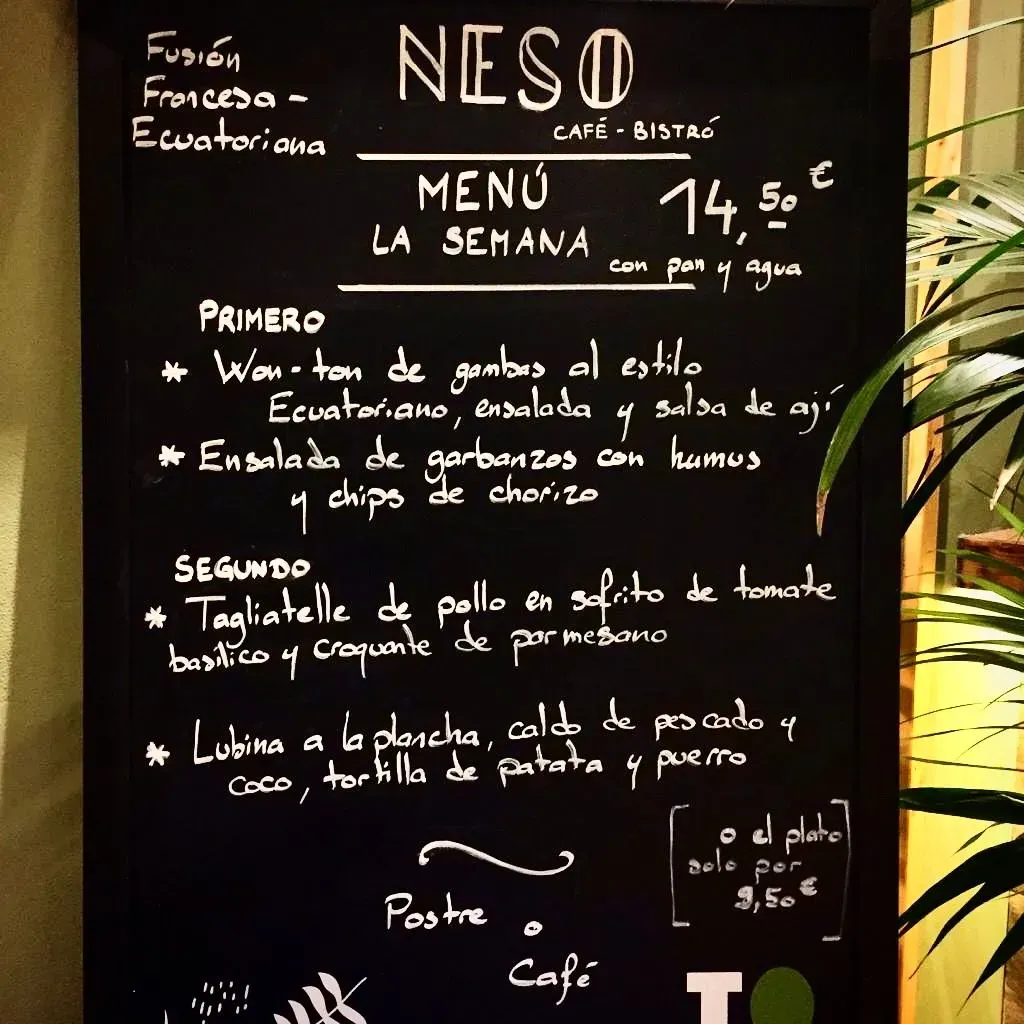 Fusión
Francesa -
Ecuatoriana
NESO
CAFÉ - BISTRÓ
MENÚ
LA SEMANA
14,50 €
con pan y agua
PRIMERO
* Won-ton de gambas al estilo
Ecuatoriano, ensalada y salsa de ají
* Ensalada de garbanzos con humus
y chips de chorizo
SEGUNDO
* Tagliatelle de pollo en sofrito de tomate
basilico y croquante de parmesano
* Lubina a la plancha, caldo de pescado y
coco, tortilla de patata y puerro
[ o el plato
solo por
9,50 € ]
Postre o
Café